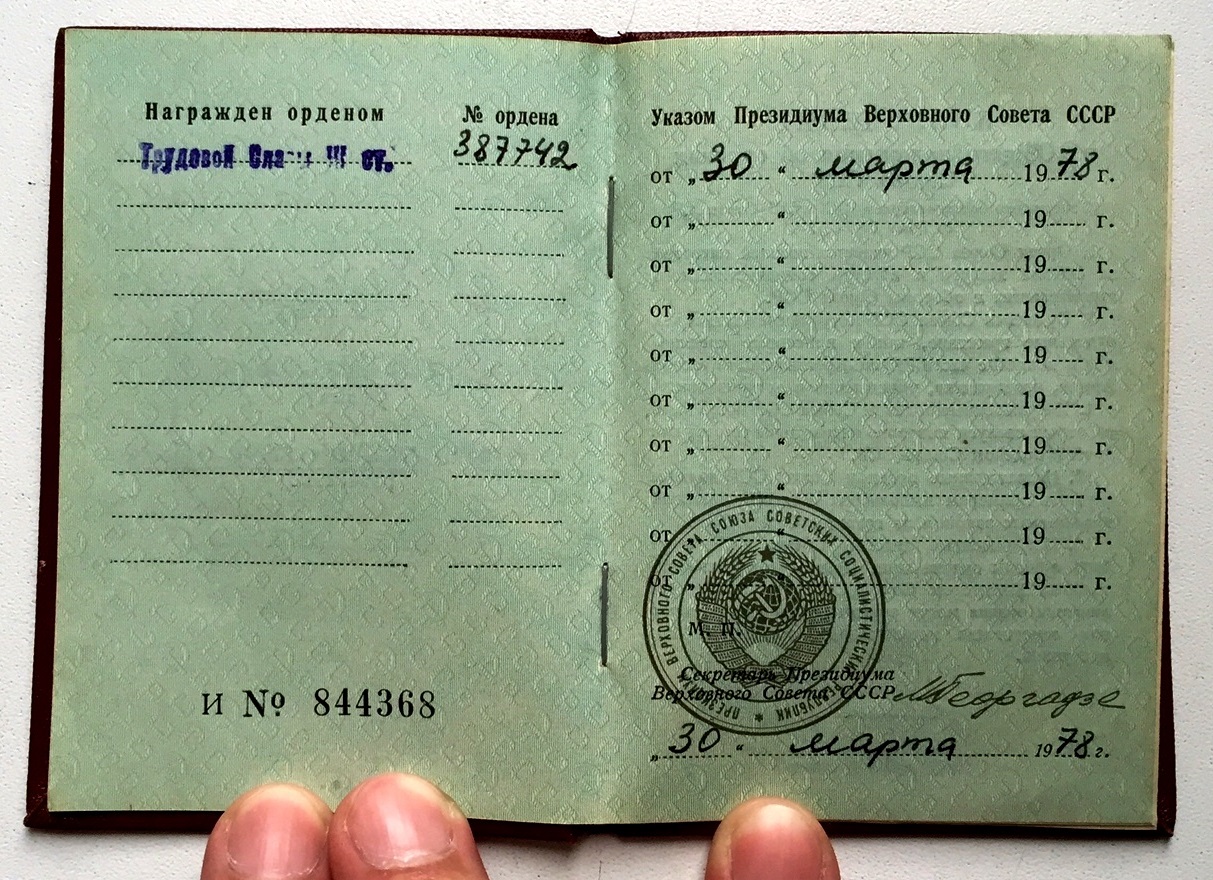 Награжден орденом
№ ордена
Трудовой Славы III ст.
387742
И № 844368
Указом Президиума Верховного Совета СССР
от „ 30 “ марта 1978 г.
от „ “ 19 г.
от „ “ 19 г.
от „ “ 19 г.
от „ “ 19 г.
от „ “ 19 г.
от „ “ 19 г.
от „ “ 19 г.
от „ “ 19 г.
от „ “ 19 г.
ПРЕЗИДИУМ ВЕРХОВНОГО СОВЕТА СОЮЗА СОВЕТСКИХ СОЦИАЛИСТИЧЕСКИХ РЕСПУБЛИК
М. П.
Секретарь Президиума
Верховного Совета СССР МГеоргадзе
„ 30 “ марта 1978 г.